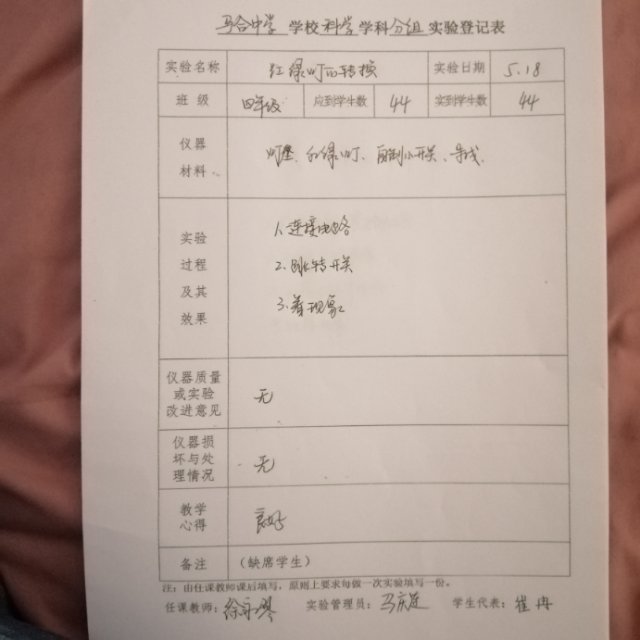 马合中学 学校 科学 学科 分组 实验登记表
实验名称 红绿灯的转换 实验日期 5.18
班 级 四年级 应到学生数 44 实到学生数 44
仪器
材料 灯座、红绿灯、 小开关、导线.
实验
过程
及其
效果
1.连接电路
2. 开关
3.看现象
仪器质量
或实验
改进意见 无
仪器损
坏与处
理情况 无
教学
心得 良好
备注 (缺席学生)
注:由任课教师课后填写,原则上要求每做一次实验填写一份。
任课教师: 实验管理员: 学生代表:崔冉